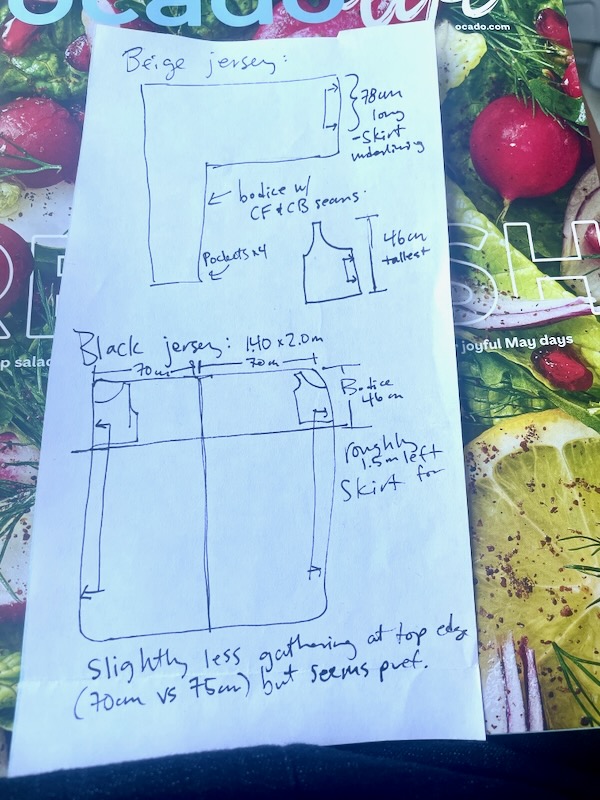 ocado life
ocado.com
Beige jersey:
78cm
long
-Skirt
underlining
bodice w/
CF & CB seams
Pockets x4
46cm
tallest
FRESH
joyful May days
p salad
Black jersey: 1.40 x 2.0m
70cm
70cm
Bodice
46cm
roughly
1.5m left
Skirt for
Slightly less gathering at top edge
(70cm vs 75cm) but seems pref.